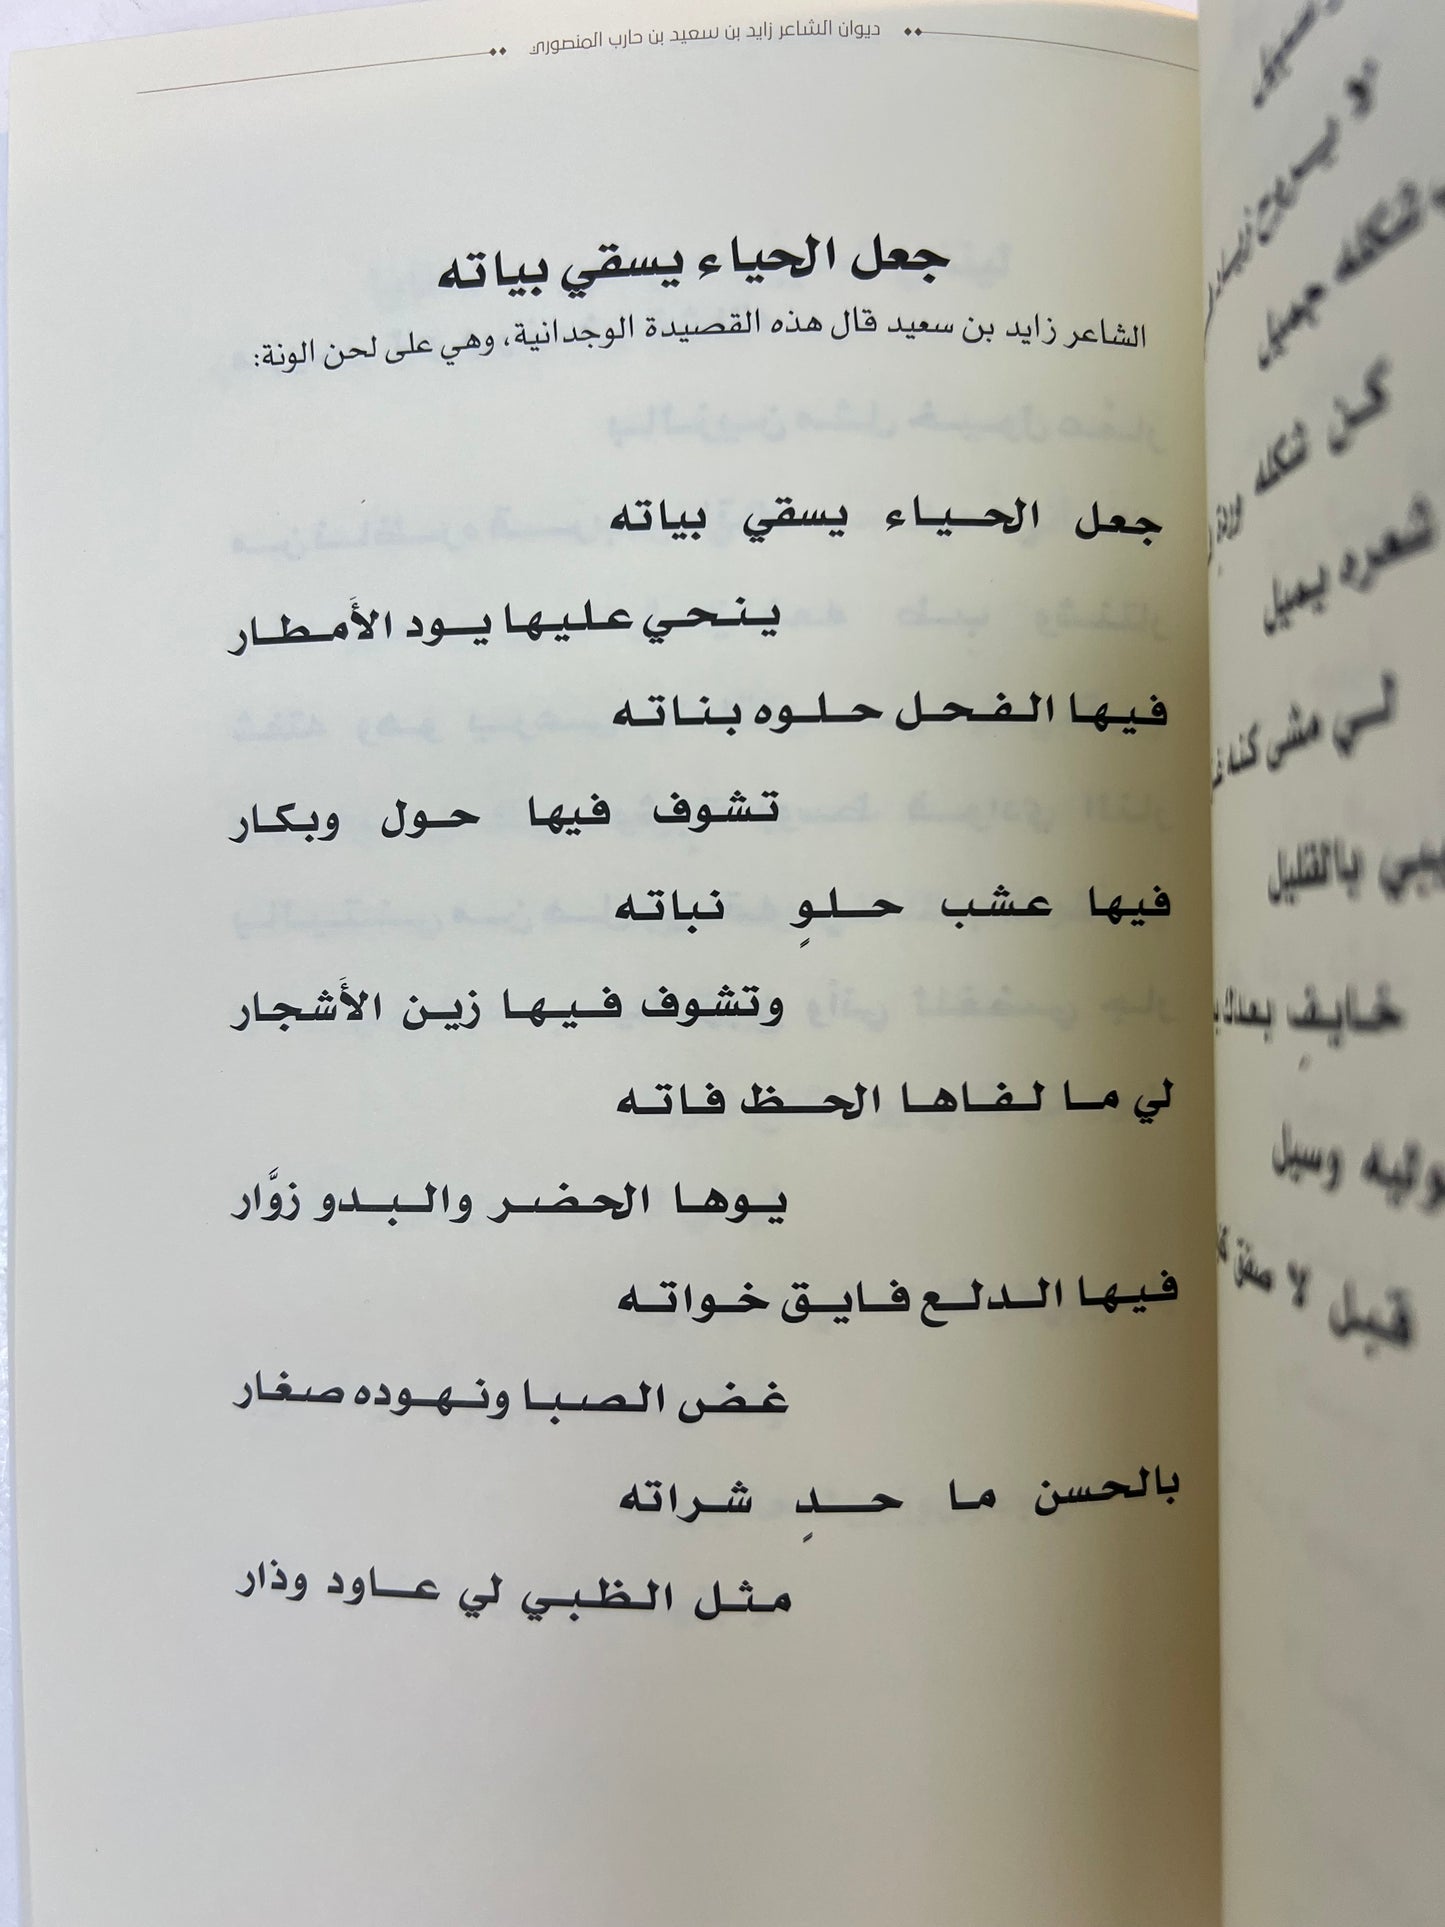 ديوان الشاعر زايد بن سعيد بن حارب المنصوري
جعل الحياء يسقي بياته
الشاعر زايد بن سعيد قال هذه القصيدة الوجدانية، وهي على لحن الونة:
جعل الحياء يسقي بياته
ينحي عليها يود الأَمطار
فيها الفحل حلوه بناته
تشوف فيها حول وبكار
فيها عشب حلوٍ نباته
وتشوف فيها زين الأَشجار
لي ما لفاها الحظ فاته
يوها الحضر والبدو زوَّار
فيها الدلع فايق خواته
غض الصبا ونهوده صغار
بالحسن ما حدٍ شراته
مثل الظبي لي عاود وذار
شكله جميل
كن شكله
شعره يميل
لي مشى كنه
بالقليل
خايفٍ بعدك
وسيل
قبل لا صفق